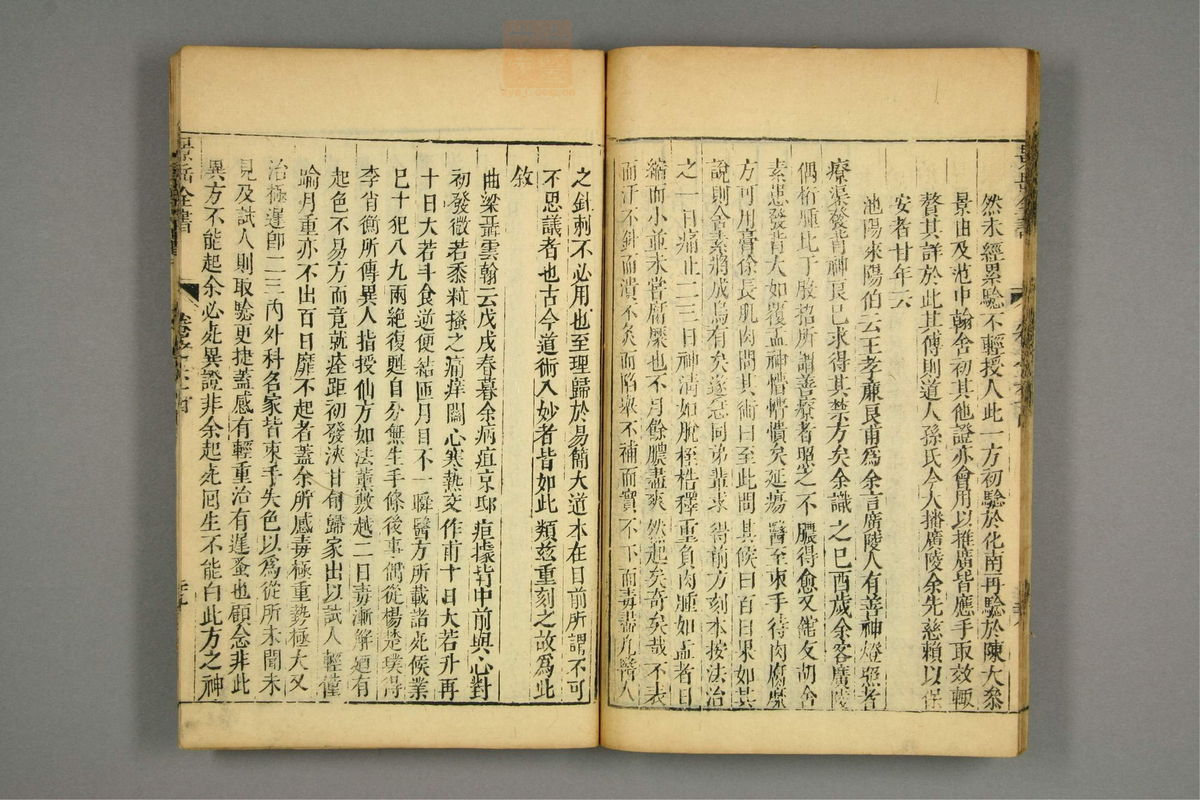 然未經累驗不輕授人此一方初驗於化南再驗於陳大參
景由及范中翰舍初其他證亦曾用以推廣皆應手取效輒
瞽其詳於此其傳則道人孫氏今人播廣陵余先慈賴以保
安者廿年云
池陽來陽伯云王孝廉良甫爲余言廣陵人有善神燈照者
療渠發背神良已求得其禁方矣余識之己酉歲余客廣陵
偶桁腫比丁殷招所謂善療者照之不膿得愈又舘友胡舍
素患發背大如覆盂神懵懵憒矣延瘍醫至束手待肉腐糜
方可用膏徐長肌肉問其術曰至此問其候曰百日果如其
說則舍素將成烏有矣遂急同弟輩求得前方刻本按法治
之一日痛止二三日神清如脫桎梏釋重負肉腫如盂者日
縮而小並未嘗腐糜也不月餘膿盡爽然起矣奇矣哉不表
而汗不針而潰不灸而陷舉不補而實不下而毒盡凡醫人
之針刺不必用也至理歸於易簡大道本在目前所謂不可
不思議者也古今道術入妙者皆如此類茲重刻之故爲此
敘
曲梁聶雲翰云戊戌春暮余病疽京邸疽據背中前與心對
初發微若黍粒搔之痛痒關心寒熱交作甫十日大若升再
十日大若斗食逆便結匝月目不一瞬醫方所載諸死候業
已十犯八九兩絕復甦自分無生手條後事偶從楊楚璞得
李肖衡所傳異人指授仙方如法薰敷越二日毒漸解廼有
起色不易方而竟就痊距初發浹廿旬歸家出以試人輕僅
踰月重亦不出百日靡不起者蓋余所感毒極重勢極大又
治極遲卽二三內外科名家皆束手失色以爲從所未聞未
見及試人則取驗更捷蓋感有輕重治有遲蚤也顧念非此
異方不能起余必死異證非余起死囘生不能白此方之神
景岳全書